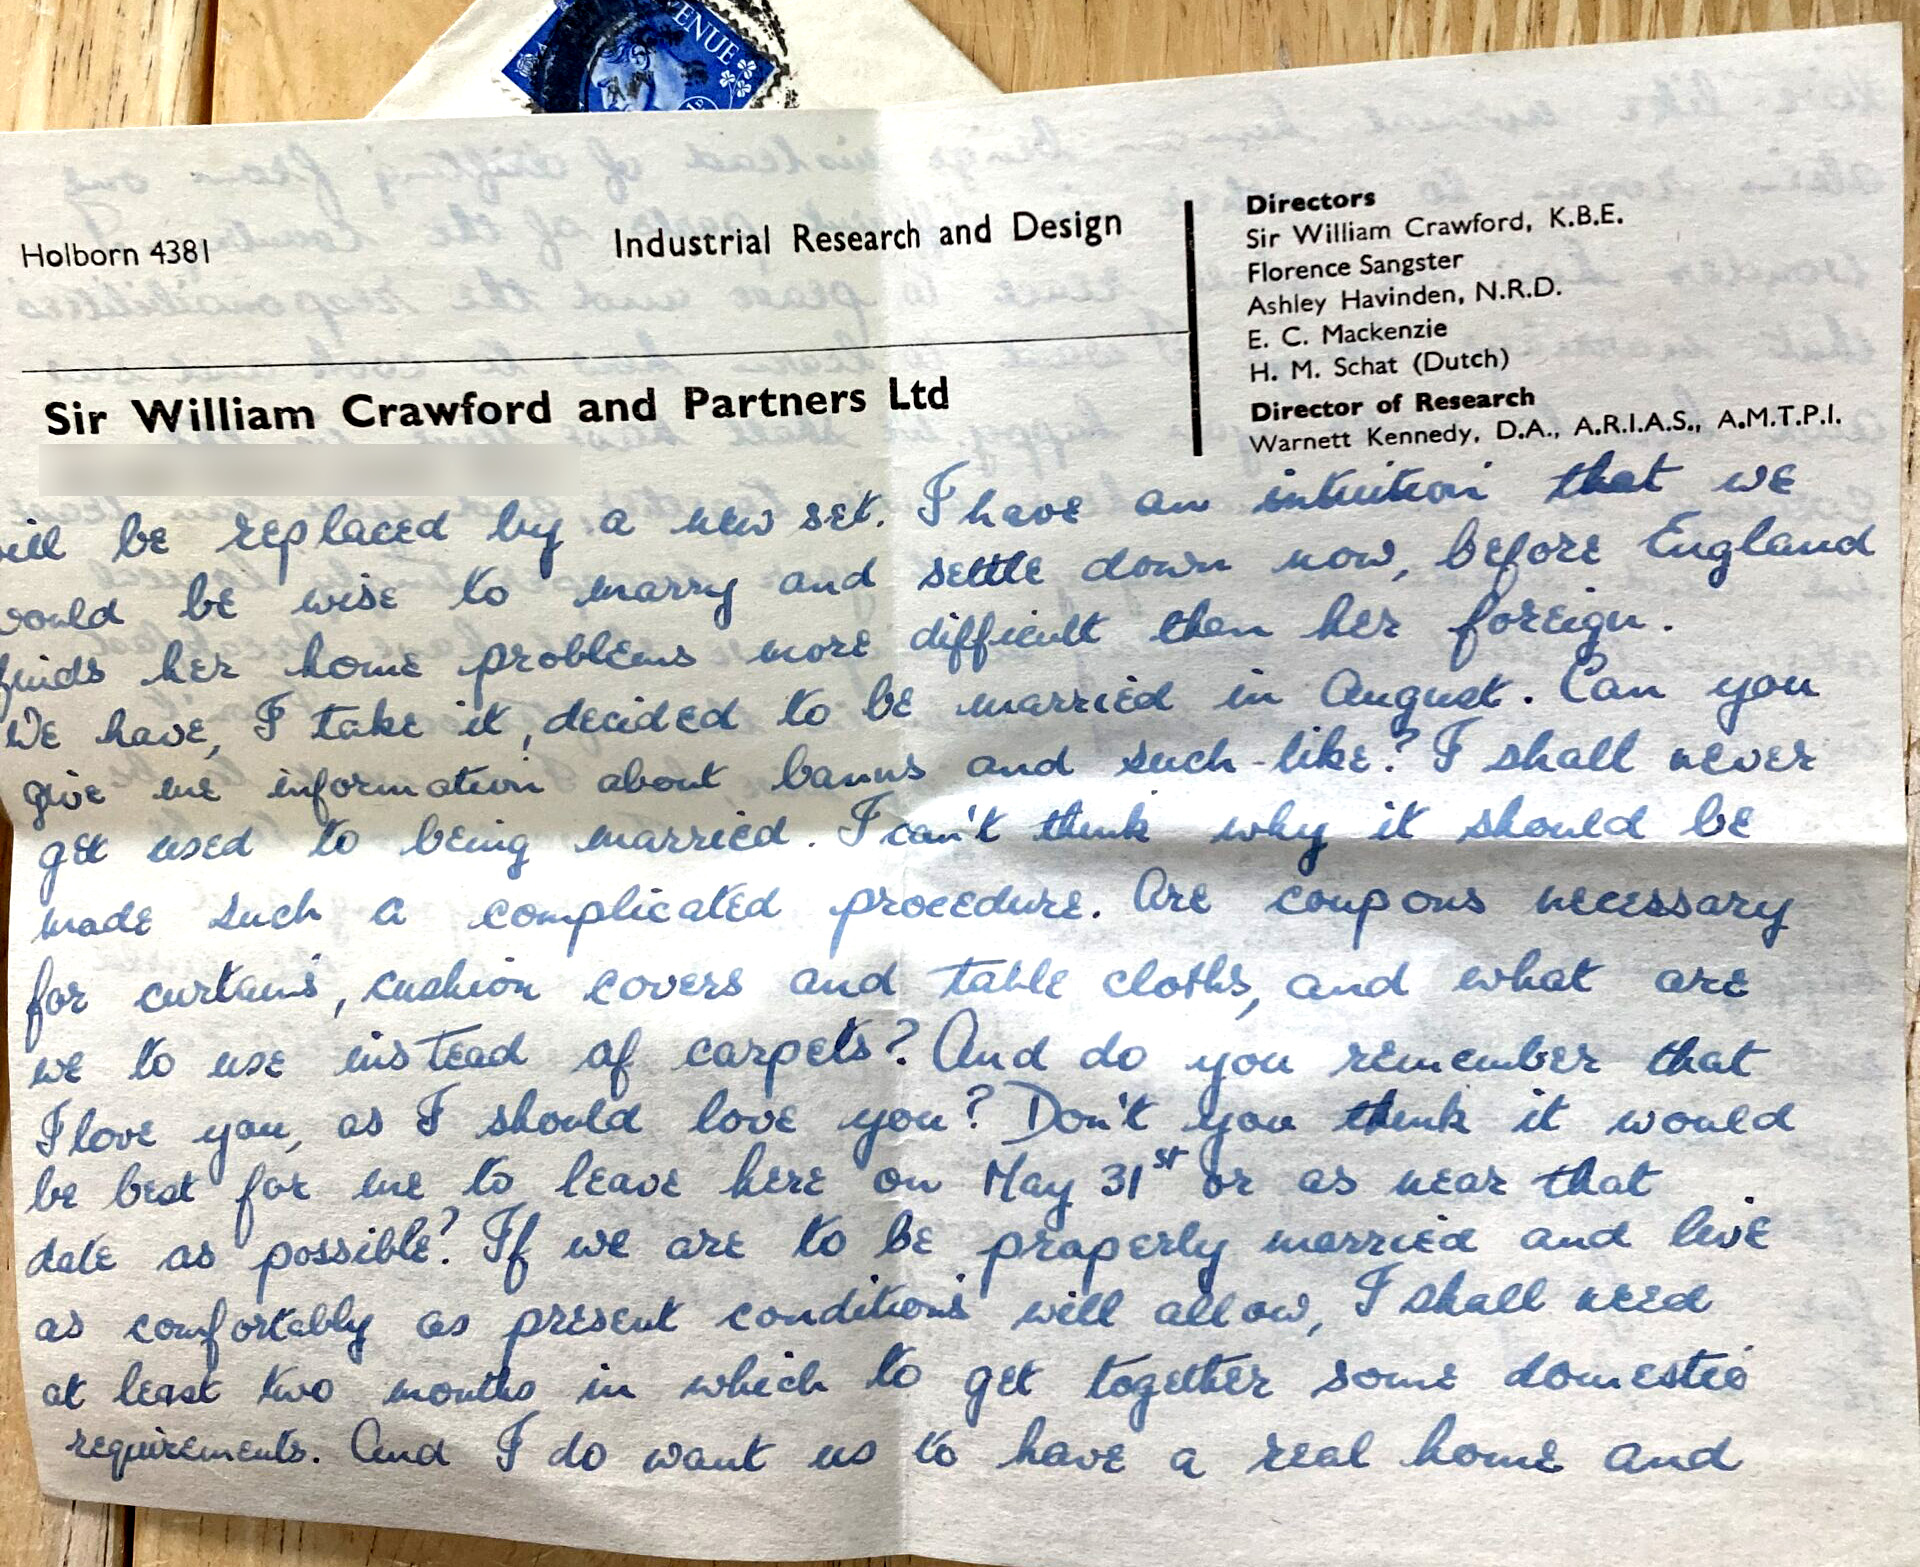 ENUE
Holborn 4381
Industrial Research and Design
Directors
Sir William Crawford, K.B.E.
Florence Sangster
Ashley Havinden, N.R.D.
E. C. Mackenzie
H. M. Schat (Dutch)
Director of Research
Warnett Kennedy, D.A., A.R.I.A.S., A.M.T.P.I.
Sir William Crawford and Partners Ltd
ill be replaced by a new set. I have an intuition that we
would be wise to marry and settle down now, before England
finds her home problems more difficult then her foreign.
We have, I take it, decided to be married in August. Can you
give me information about banns and such-like? I shall never
get used to being married. I can't think why it should be
made such a complicated procedure. Are coupons necessary
for curtains, cushion covers and table cloths, and what are
we to use instead of carpets? And do you remember that
I love you, as I should love you? Don't you think it would
be best for me to leave here on May 31st or as near that
date as possible? If we are to be properly married and live
as comfortably as present conditions will allow, I shall need
at least two months in which to get together some domestic
requirements. And I do want us to have a real home and